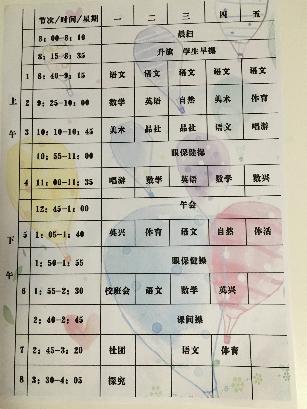 节次/时间/星期 一 二 三 四 五
8：00-8：10 晨扫
8：15-8：35 升旗 学生早操
1 8：40-9：15 语文 语文 语文 语文 语文
上 2 9：25-10：00 数学 英语 自然 美术 体育
午 3 10：10-10：45 美术 品社 品社 语文 唱游
10：55-11：00 眼保健操
4 11：00-11：35 唱游 数学 英语 数学 数兴
12：45-1：00 午会
下 5 1：05-1：40 英兴 体育 语文 自然 体活
午 1：50-1：55 眼保健操
6 1：55-2：30 校班会 语文 数学 英兴
2：40-2：45 课间操
7 2：45-3：20 社团 语文 体育
8 3：30-4：05 探究